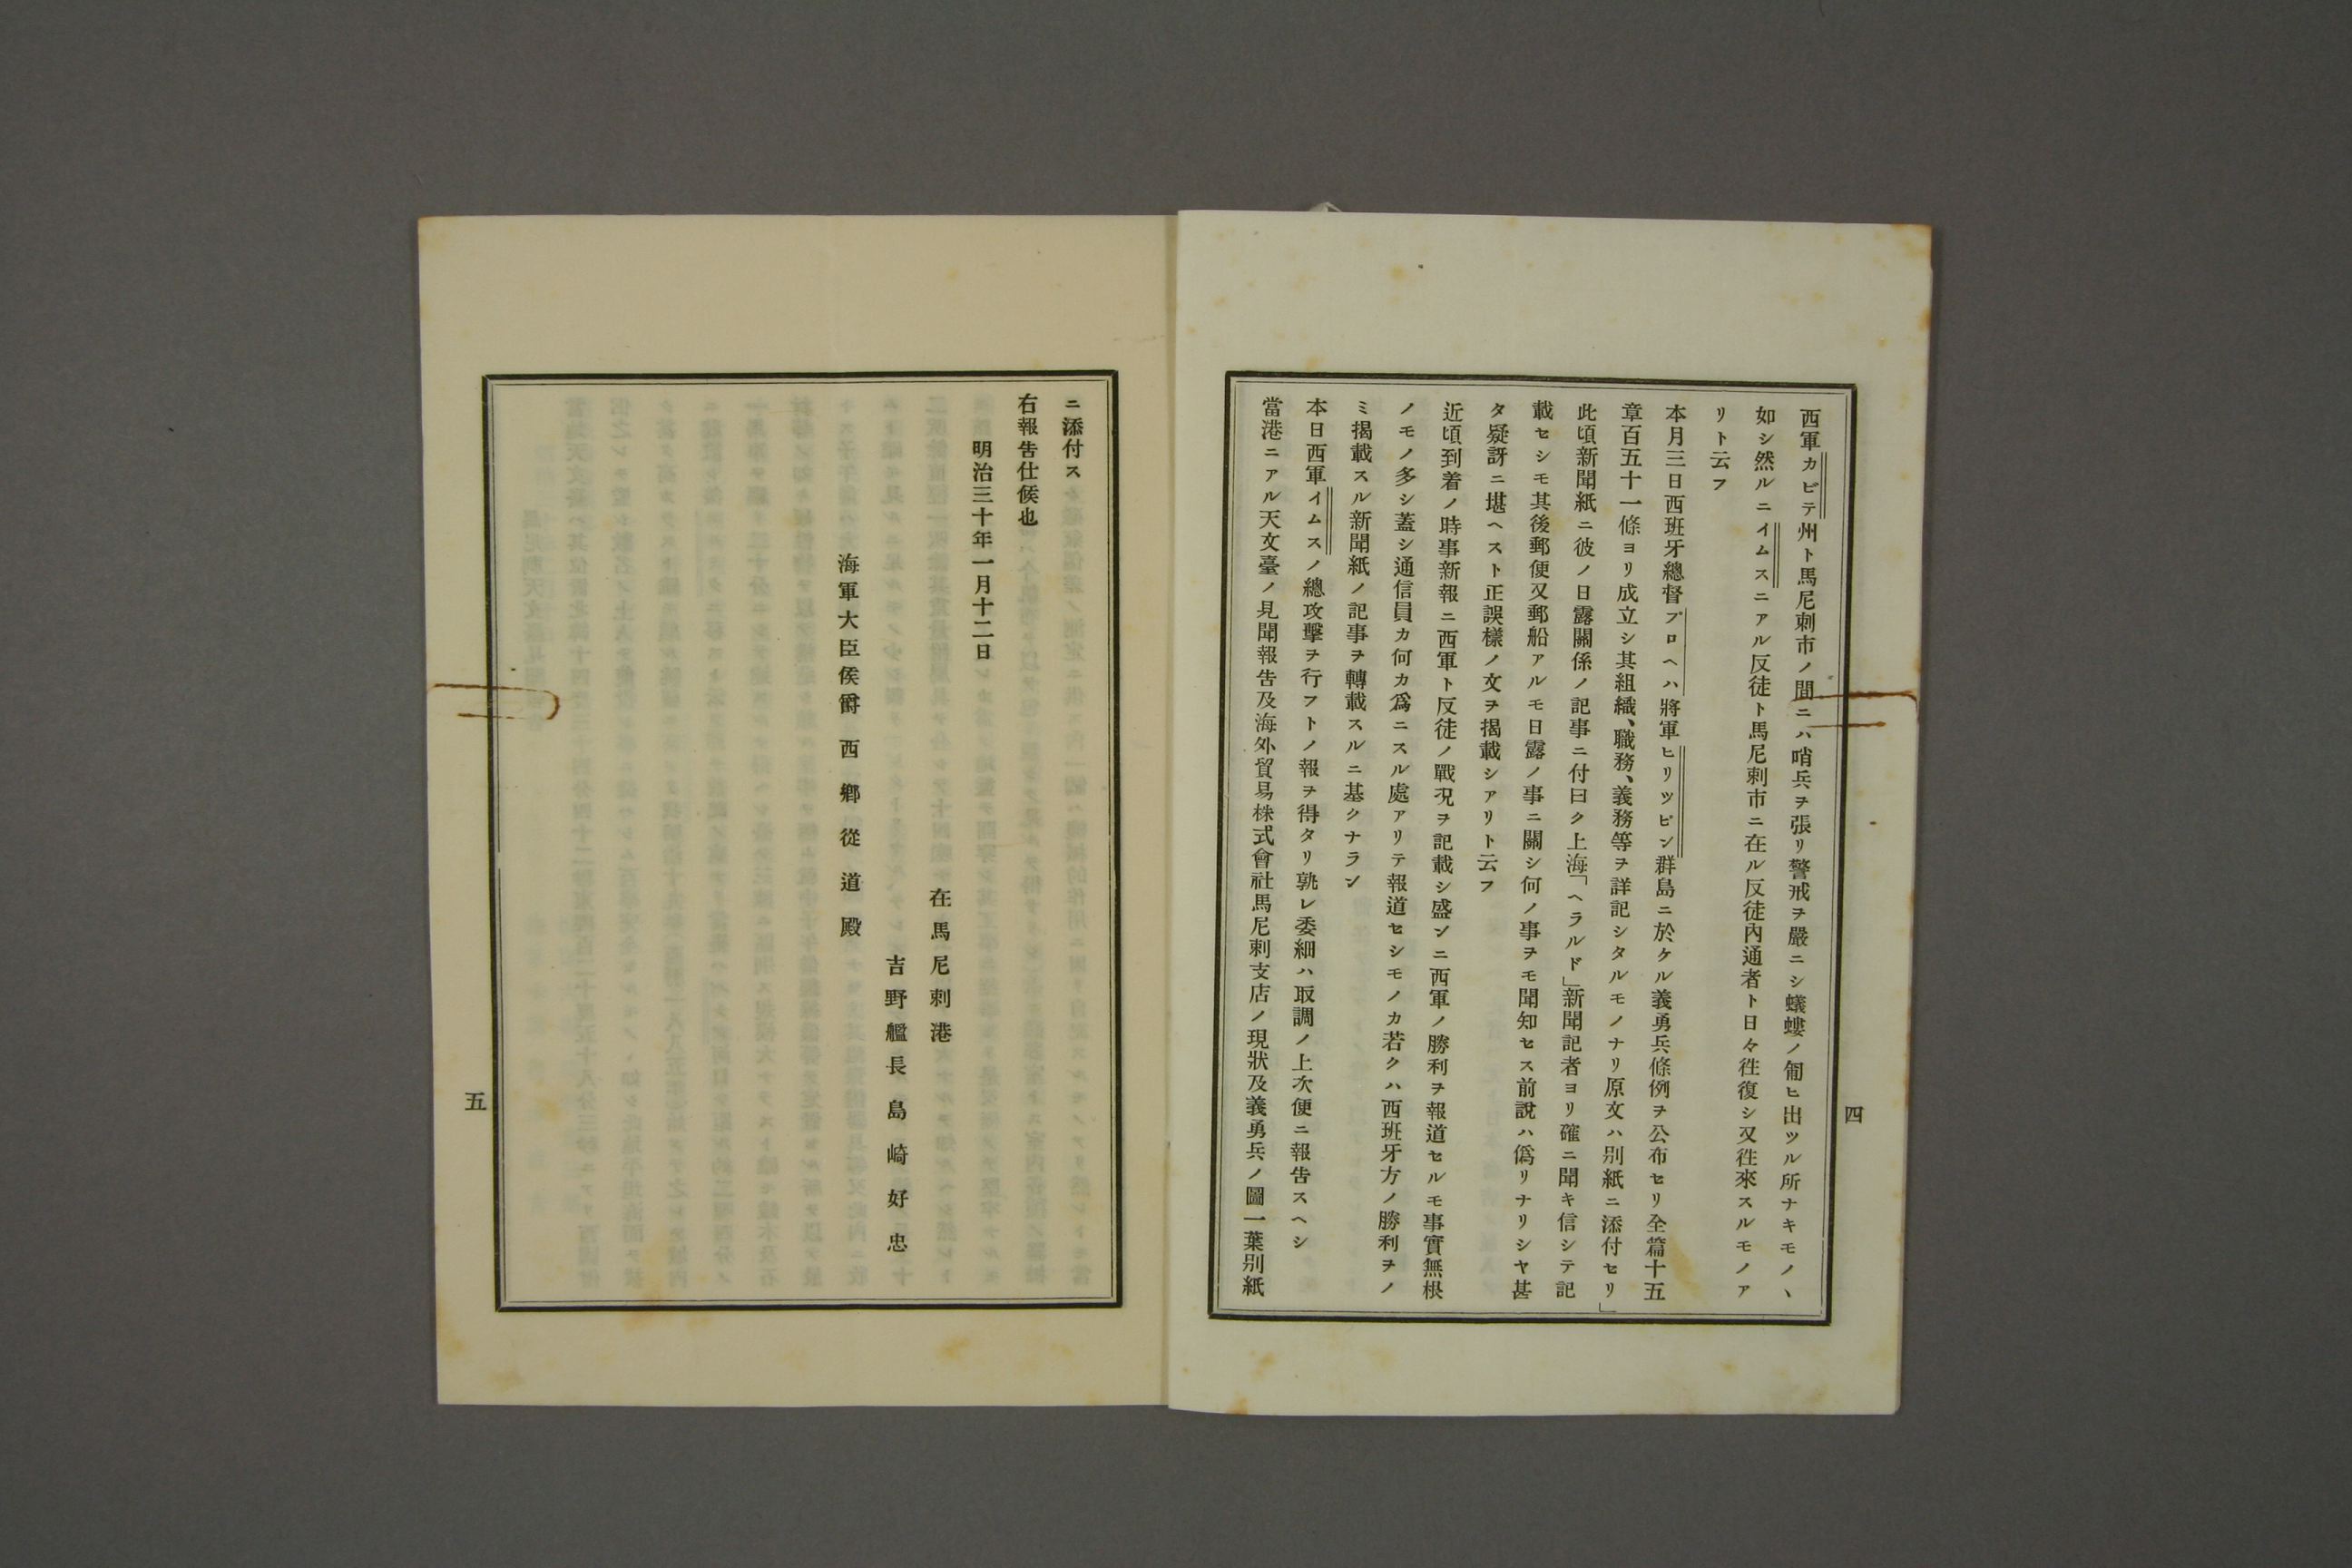 西軍カビテ州ト馬尼剌市ノ間ニハ哨兵ヲ張リ警戒ヲ嚴ニシ蟻螻ノ匍ヒ出ツル所ナキモノヽ
如シ然ルニイムスニアル反徒ト馬尼剌市ニ在ル反徒內通者ト日々徃復シ又徃來スルモノア
リト云フ
本月三日西班牙總督プロヘハ將軍ヒリツピン群島ニ於ケル義勇兵條例ヲ公布セリ全篇十五
章百五十一條ヨリ成立シ其組織、職務、義務等ヲ詳記シタルモノナリ原文ハ別紙ニ添付セリ」
此頃新聞紙ニ彼ノ日露關係ノ記事ニ付曰ク上海「ヘラルド」新聞記者ヨリ確ニ聞キ信シテ記
載セシモ其後郵便又郵船アルモ日露ノ事ニ關シ何ノ事ヲモ聞知セス前說ハ僞リナリシヤ甚
タ疑訝ニ堪ヘスト正誤樣ノ文ヲ揭載シアリト云フ
近頃到着ノ時事新報ニ西軍ト反徒ノ戰況ヲ記載シ盛ンニ西軍ノ勝利ヲ報道セルモ事實無根
ノモノ多シ蓋シ通信員カ何カ爲ニスル處アリテ報道セシモノカ若クハ西班牙方ノ勝利ヲノ
ミ揭載スル新聞紙ノ記事ヲ轉載スルニ基クナラン
本日西軍イムスノ總攻擊ヲ行フトノ報ヲ得タリ孰レ委細ハ取調ノ上次便ニ報告スヘシ
當港ニアル天文臺ノ見聞報告及海外貿易株式會社馬尼剌支店ノ現狀及義勇兵ノ圖一葉別紙
四
ニ添付ス
右報告仕候也
明治三十年一月十二日
在馬尼剌港
吉野艦長島崎好忠
海軍大臣侯爵西鄕從道殿
五